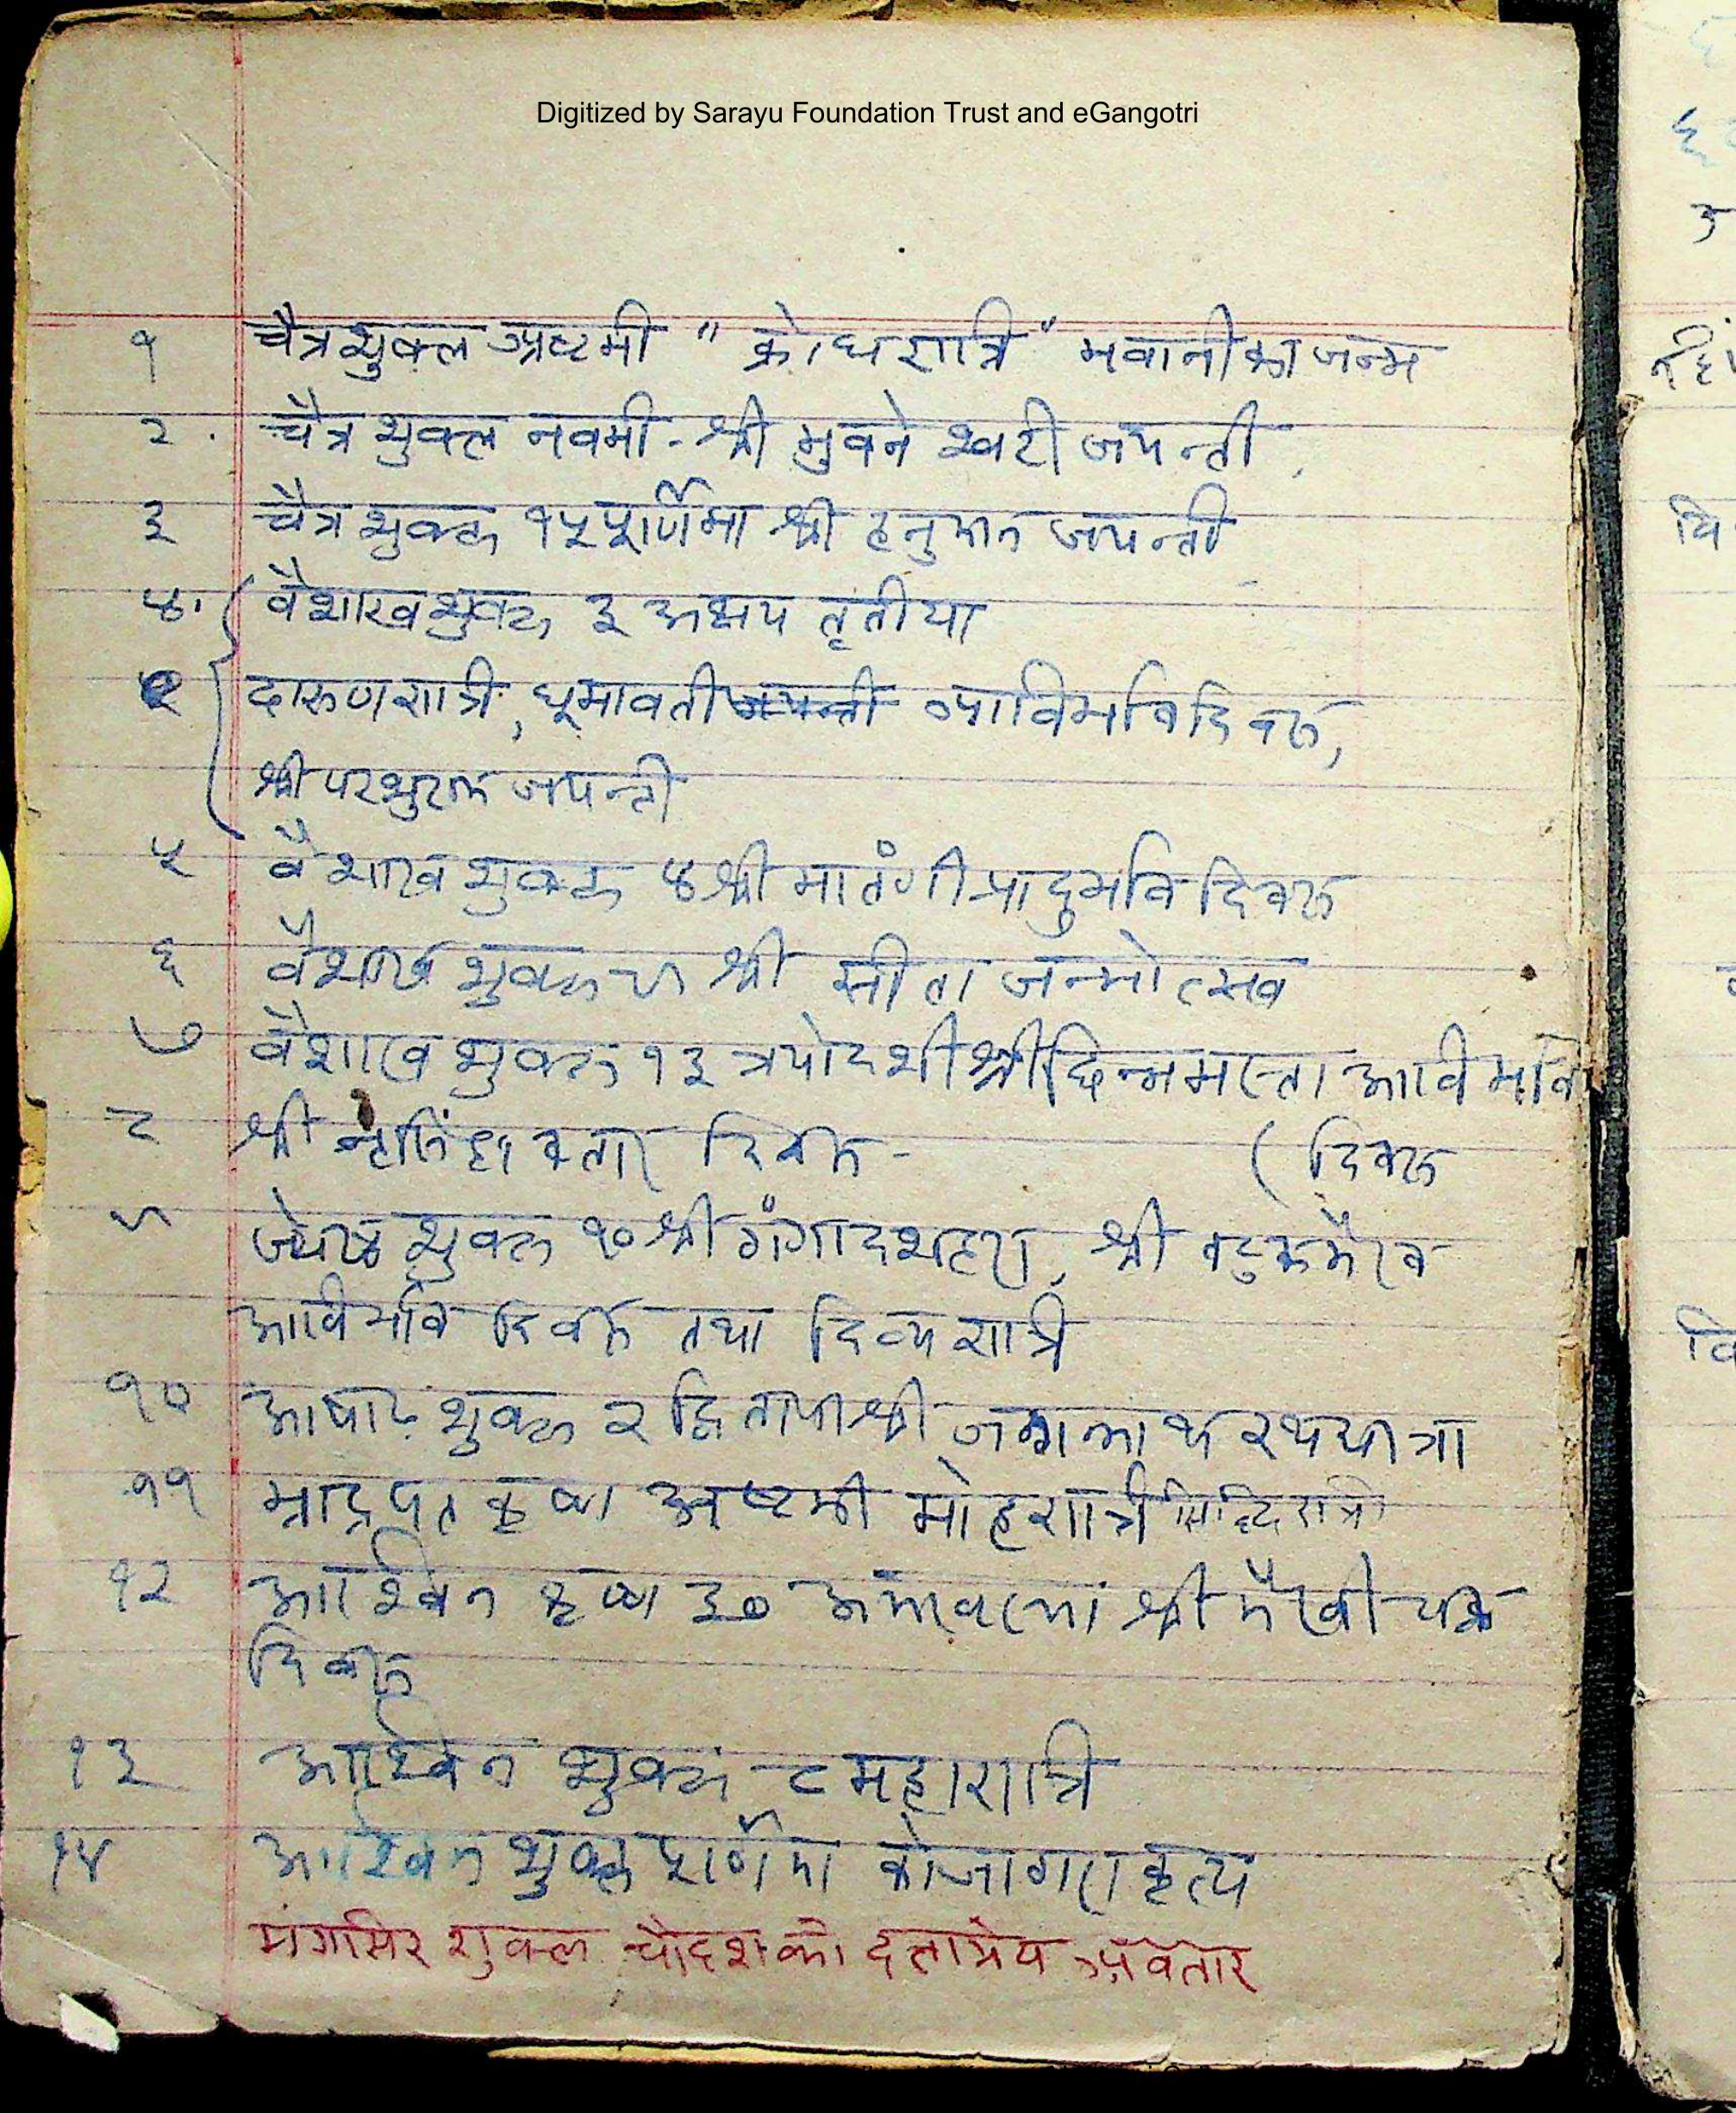 Digitized by Sarayu Foundation Trust and eGangotri
१ चैत्र शुक्ल अष्टमी "क्रोधरात्रि" भवानी का जन्म
२. चैत्र शुक्ल नवमी - श्री भुवनेश्वरी जयन्ती
३ चैत्र शुक्ल १५ पूर्णिमा श्री हनुमान जयन्ती
४. वैशाख शुक्ल ३ अक्षय तृतीया
दारुण रात्रि, धूमावती जयन्ती आविर्भाव दिवस,
श्री परशुराम जयन्ती
५ वैशाख शुक्ल ४ श्री मातंगी प्रादुर्भाव दिवस
६ वैशाख शुक्ल ९ श्री सीता जन्मोत्सव
७ वैशाख शुक्ल १३ त्रयोदशी श्री छिन्नमस्ता आविर्भाव
८ श्री नृसिंहावतार दिवस - (दिवस
९ ज्येष्ठ शुक्ल १० श्री गंगादशहरा, श्री वटुक भैरव
आविर्भाव दिवस तथा दिव्य रात्रि
१० आषाढ़ शुक्ल २ द्वितीया श्री जगन्नाथ रथयात्रा
११ भाद्रपद कृष्ण अष्टमी मोहरात्रि सिद्धिरात्रि
१२ आश्विन कृष्ण ३० अमावस्या श्री भैरवी चक्र
दिवस
१३ आश्विन शुक्ल ८ महारात्रि
१४ आश्विन शुक्ल पूर्णिमा कोजागरा कृत्य
मंगसिर शुक्ल चौदश को दत्तात्रेय अवतार